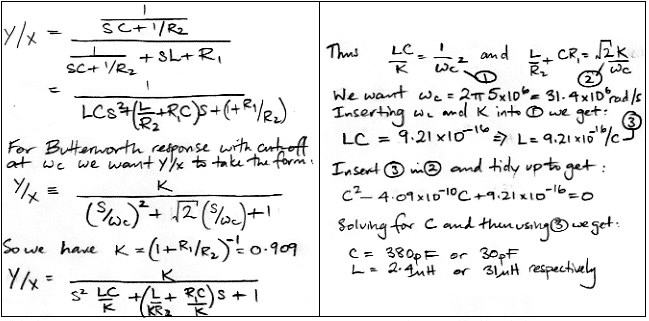 Y/X = 1/(SC + 1/R₂) / (1/(SC + 1/R₂) + SL + R₁)
= 1 / (LCS² + (L/R₂ + R₁C)S + (1 + R₁/R₂))
For Butterworth response with cut-off
at ωc we want Y/X to take the form:
Y/X ≡ K / ((S/ωc)² + √2 (S/ωc) + 1)
So we have K = (1 + R₁/R₂)⁻¹ = 0.909
Y/X = K / (S² LC/K + (L/KR₂ + R₁C/K) S + 1)
Thus LC/K = 1/ωc² ① and L/R₂ + CR₁ = √2 K/ωc ②
We want ωc = 2π 5x10⁶ = 31.4x10⁶ rad/s
Inserting ωc and K into ① we get:
LC = 9.21x10⁻¹⁶ ⇒ L = 9.21x10⁻¹⁶/C ③
Insert ③ in ② and tidy up to get:
C² - 4.09x10⁻¹⁰C + 9.21x10⁻¹⁶ = 0
Solving for C and then using ③ we get:
C = 380pF or 30pF
L = 2.4μH or 31μH respectively